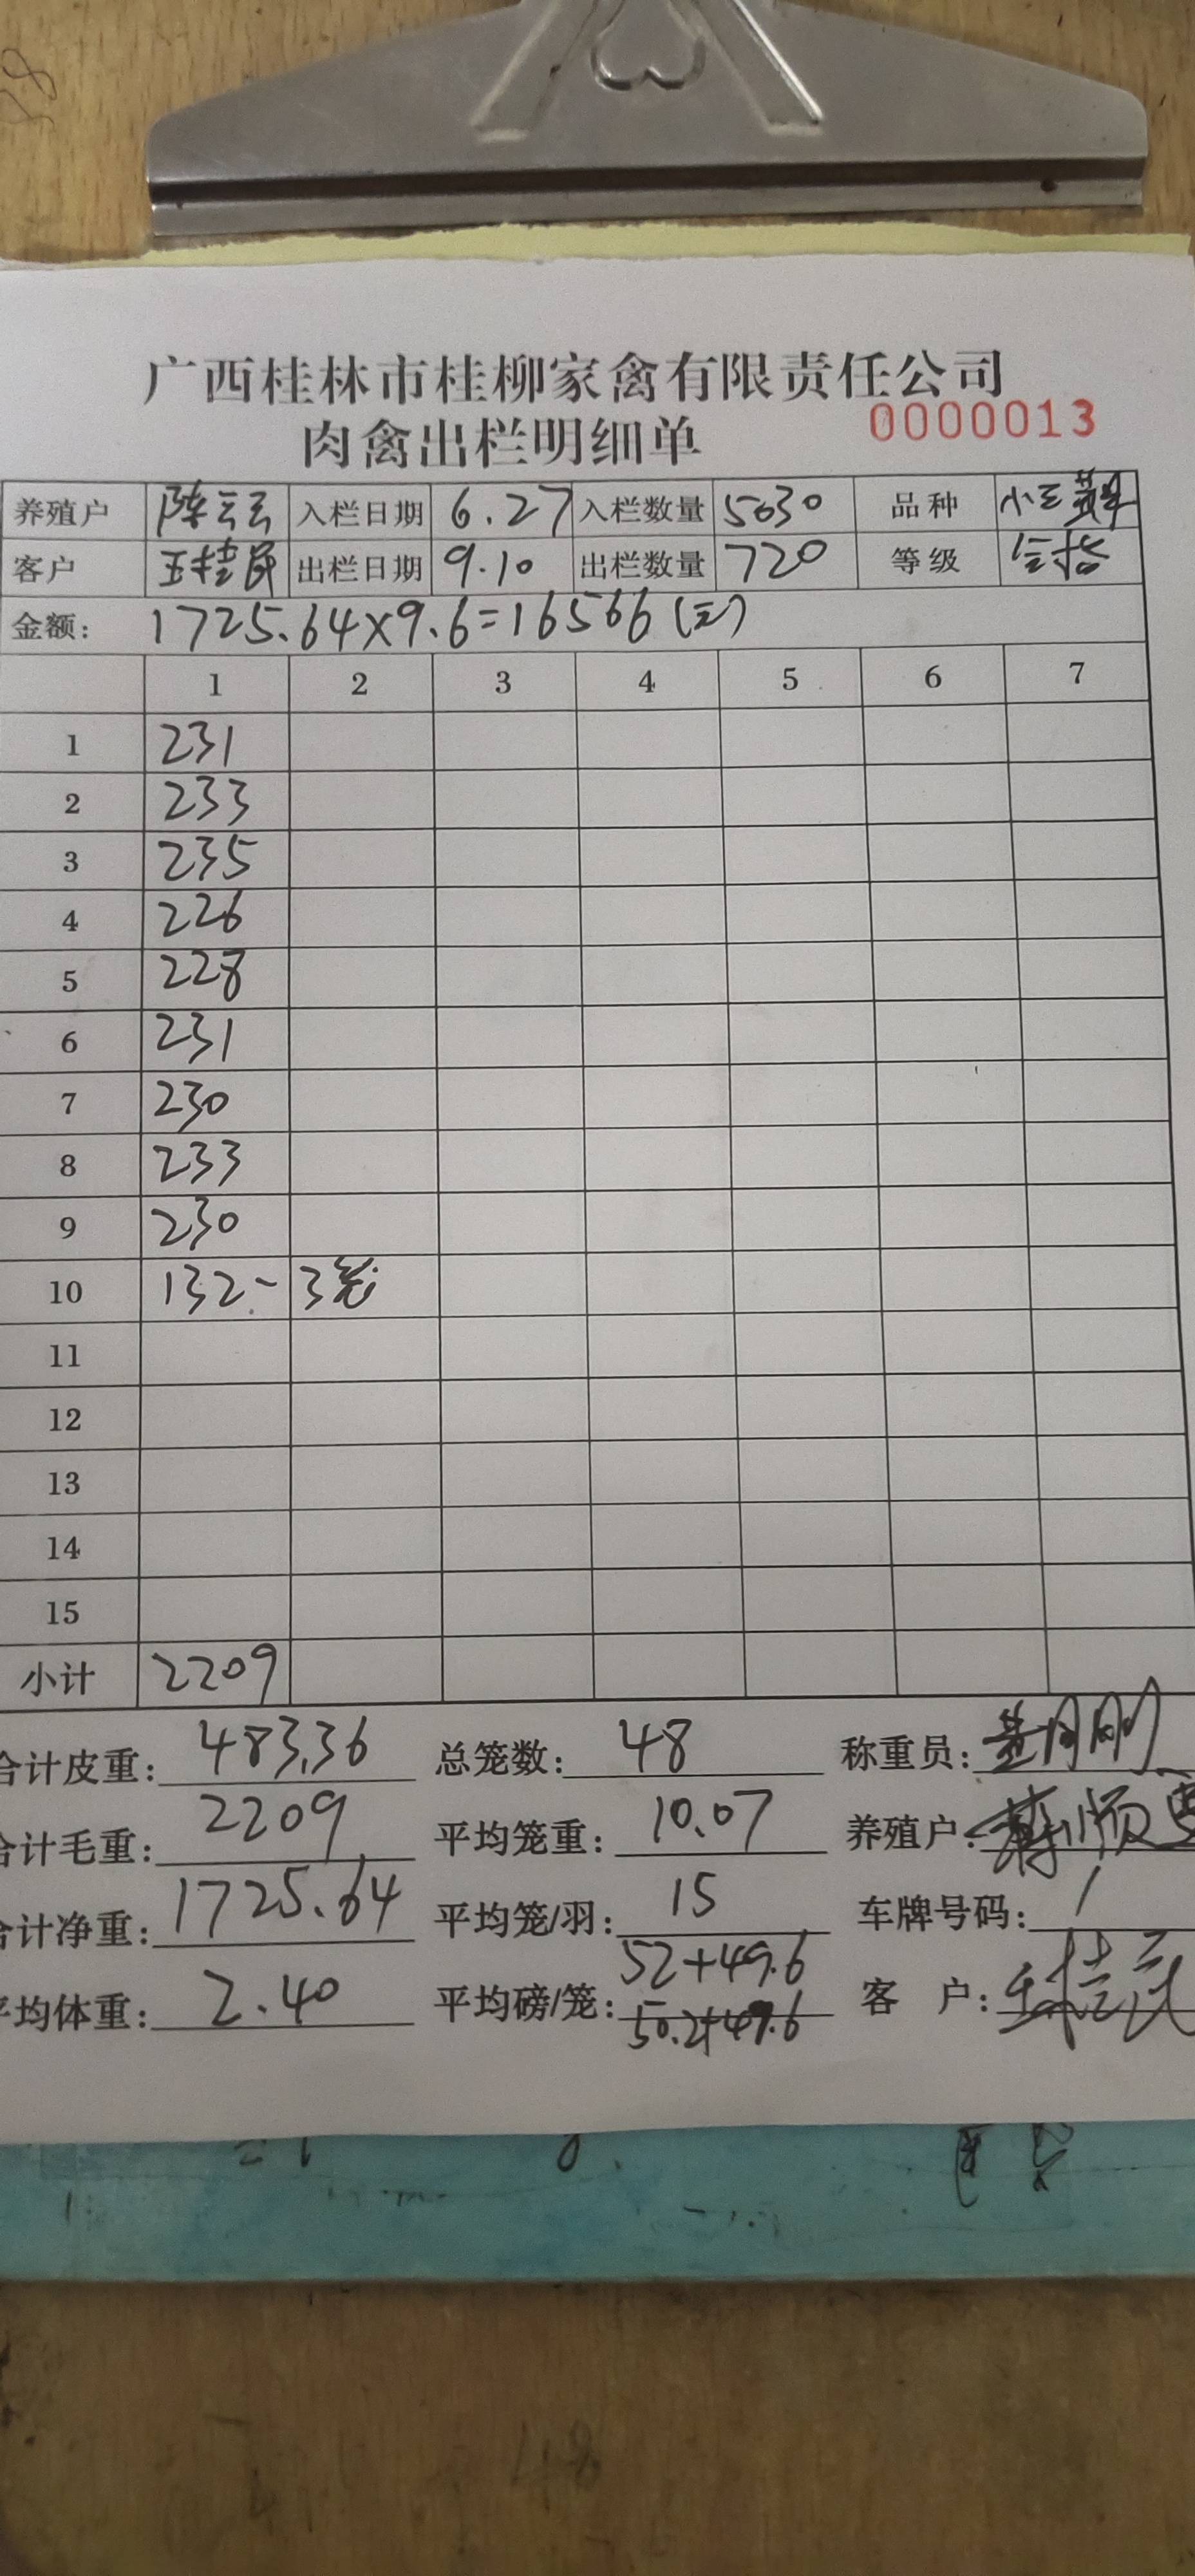 广西桂林市桂柳家禽有限责任公司
肉禽出栏明细单 0000013
养殖户 陈云云 入栏日期 6.27 入栏数量 5030 品种 小三黄
客户 王桂民 出栏日期 9.10 出栏数量 720 等级
金额: 1725.64×9.6=16566(元)
1 2 3 4 5 6 7
1 231
2 233
3 235
4 226
5 228
6 231
7 230
8 233
9 230
10 132-3笼
11
12
13
14
15
小计 2209
合计皮重: 483.36 总笼数: 48 称重员:
合计毛重: 2209 平均笼重: 10.07 养殖户:
合计净重: 1725.64 平均笼/羽: 15 车牌号码: /
平均体重: 2.40 平均磅/笼: 52+49.6 50.2+49.6 客户: 王桂民